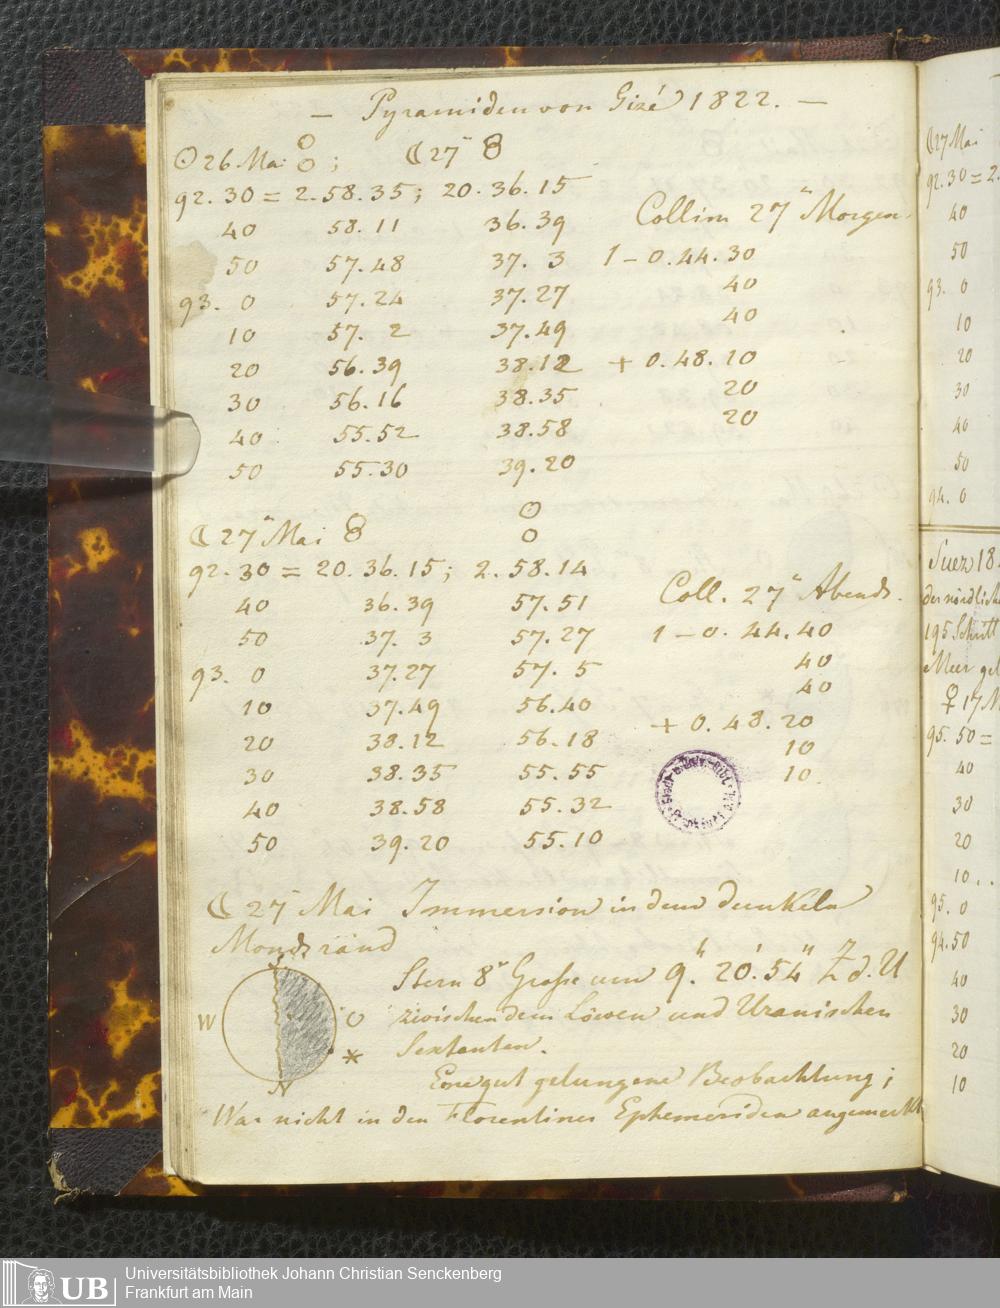 — Pyramiden von Gizé 1822. —
☉ 26. Mai ; ☾ 27ⁿ
92. 30 = 2. 58. 35 ; 20. 36. 15
40 58. 11 36. 39
50 57. 48 37. 3
93. 0 57. 24 37. 27
10 57. 2 37. 49
20 56. 39 38. 12
30 56. 16 38. 35
40 55. 52 38. 58
50 55. 30 39. 20
Collim 27ⁿ Morgen.
1 – 0. 44. 30
40
40
+ 0. 48. 20
20
20
☾ 27ⁿ Mai
92. 30 = 20. 36. 15 ; 2. 58. 14
40 36. 39 57. 51
50 37. 3 57. 27
93. 0 37. 27 57. 5
10 37. 49 56. 40
20 38. 12 56. 18
30 38. 35 55. 55
40 38. 58 55. 32
50 39. 20 55. 10
Coll. 27ⁿ Abends.
1 – 0. 44. 40
40
40
+ 0. 48. 20
10
10.
☾ 27ⁿ Mai Immersion in dem dunkeln
Mondsrand
Stern 8ʳ Große um 9.ʰ 20.′ 54″ Z d. U
zwischen dem Löwen und Uranischen
Sextanten.
Eine gut gelungene Beobachtung ;
War nicht in den Florentiner Ephemeriden angemerkt
S
W
O
N
☾ 27 Mai
92. 30 = 2.
40
50
93. 0
10
20
30
40
50
94. 0
Suez 18
der nördlich
195 Schritt
Meer
♀ 17 M
95. 50 =
40
30
20
10 . .
95. 0
94. 50
40
30
20
10
UB
Universitätsbibliothek Johann Christian Senckenberg
Frankfurt am Main